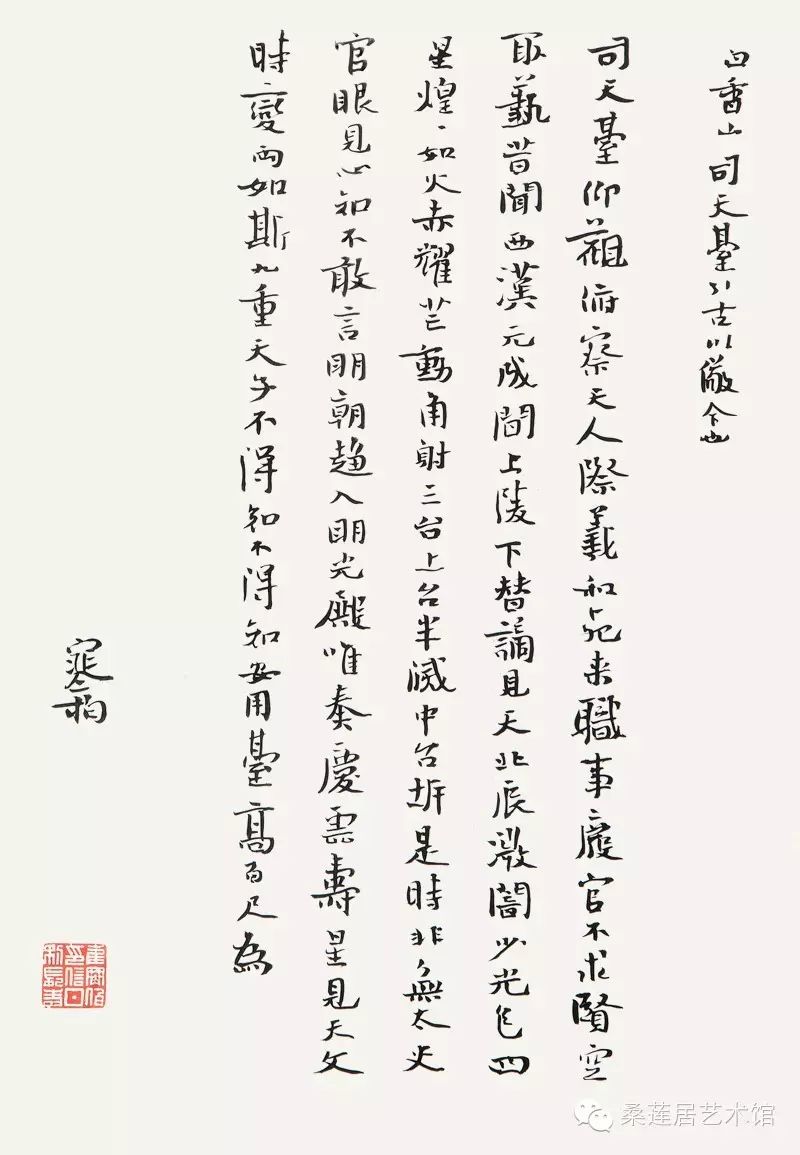 白香山司天臺引古以儆今也
司天臺仰觀俯察天人際羲和死来職事廢官不求賢空
取藝昔聞西漢元成間上陵下替謫見天北辰微闇少光色四
星煌、如火赤耀芒動角射三台上台半滅中台坼是時非無太史
官眼見心知不敢言明朝趨入明光殿唯奏慶雲壽星見天文
時變兩如斯九重天子不得知不得知安用臺高百尺為
桑莲居艺术馆